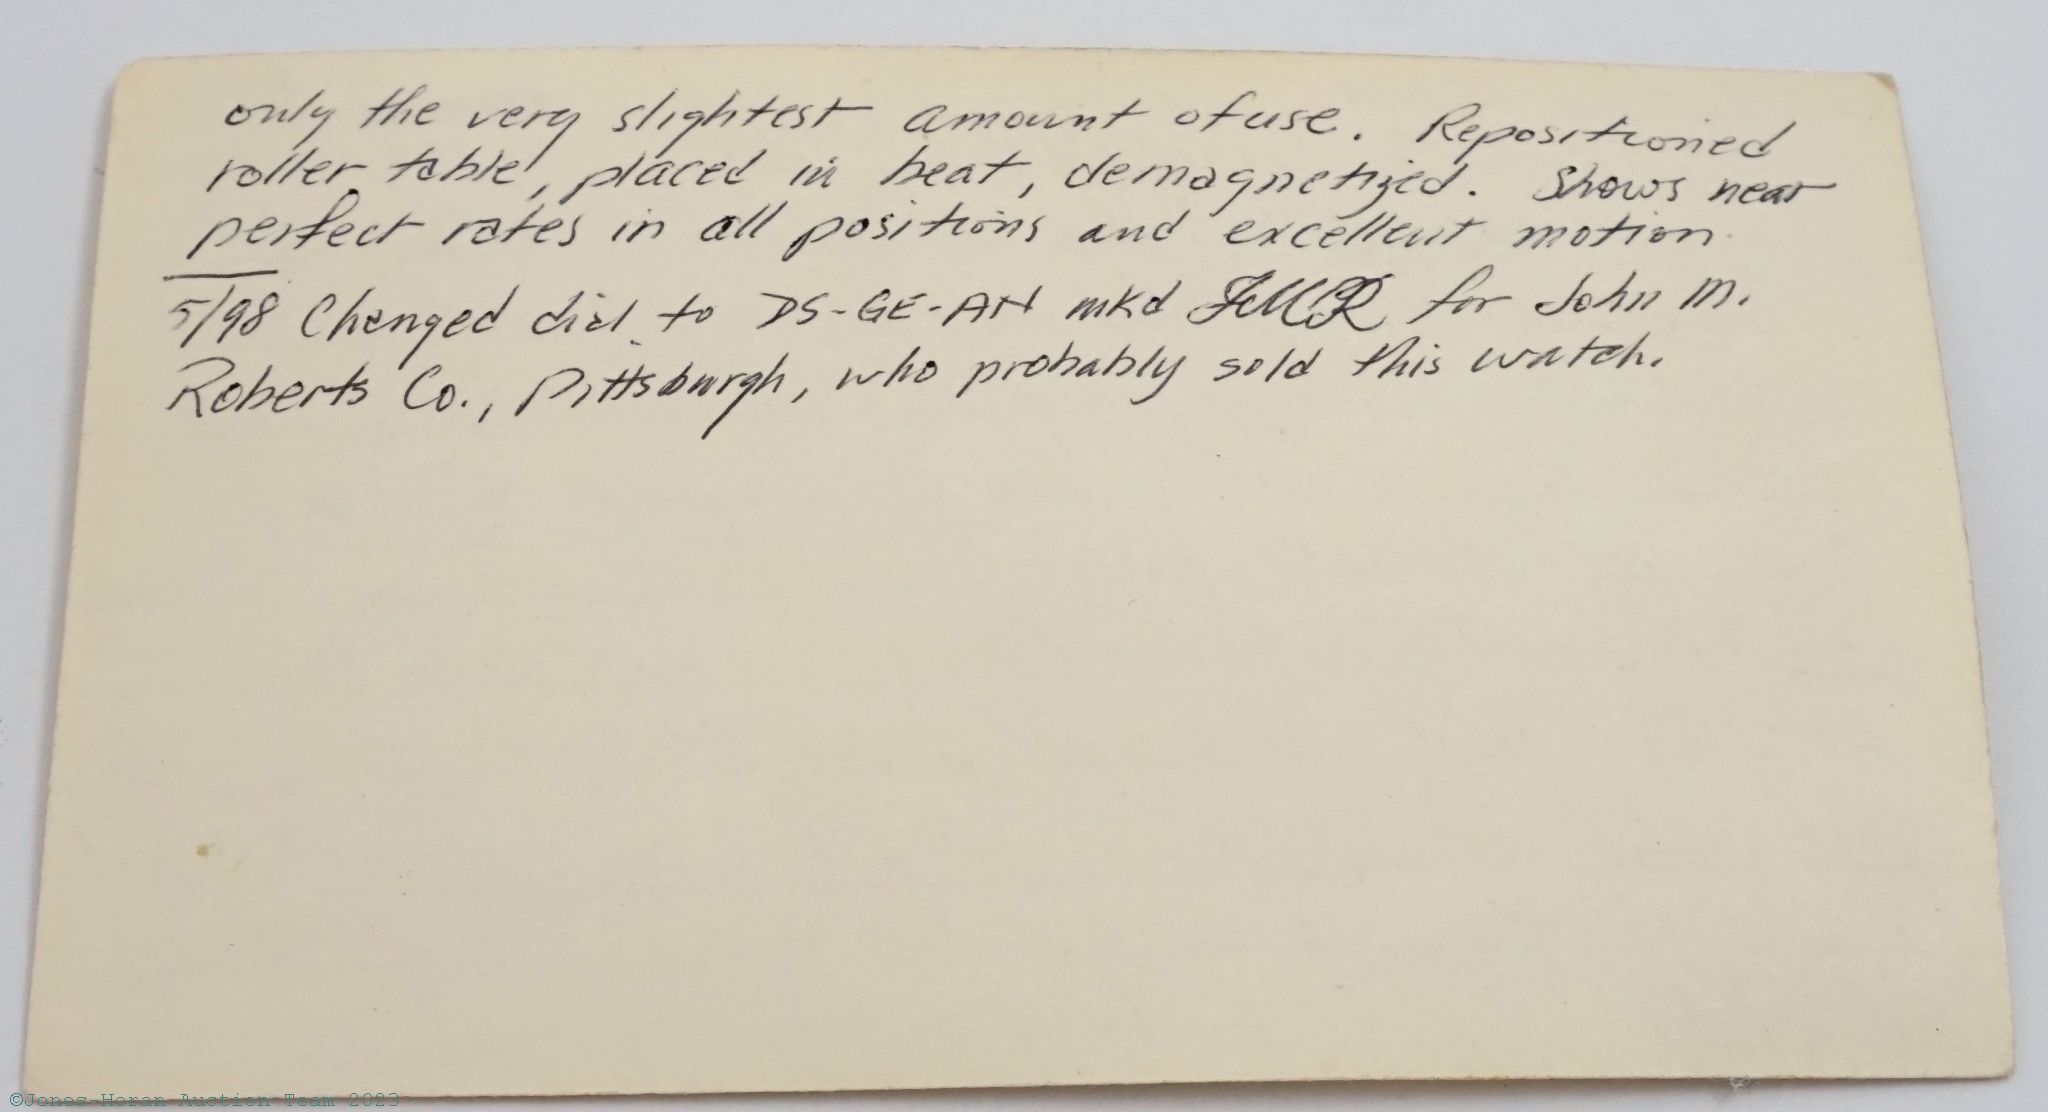 only the very slightest amount of use. Repositioned
roller table, placed in beat, demagnetized. Shows near
perfect rates in all positions and excellent motion.
5/98 Changed dial to DS-GE-AN mkd JMR for John M.
Roberts Co., Pittsburgh, who probably sold this watch.
©Jones-Horan Auction Team 2023